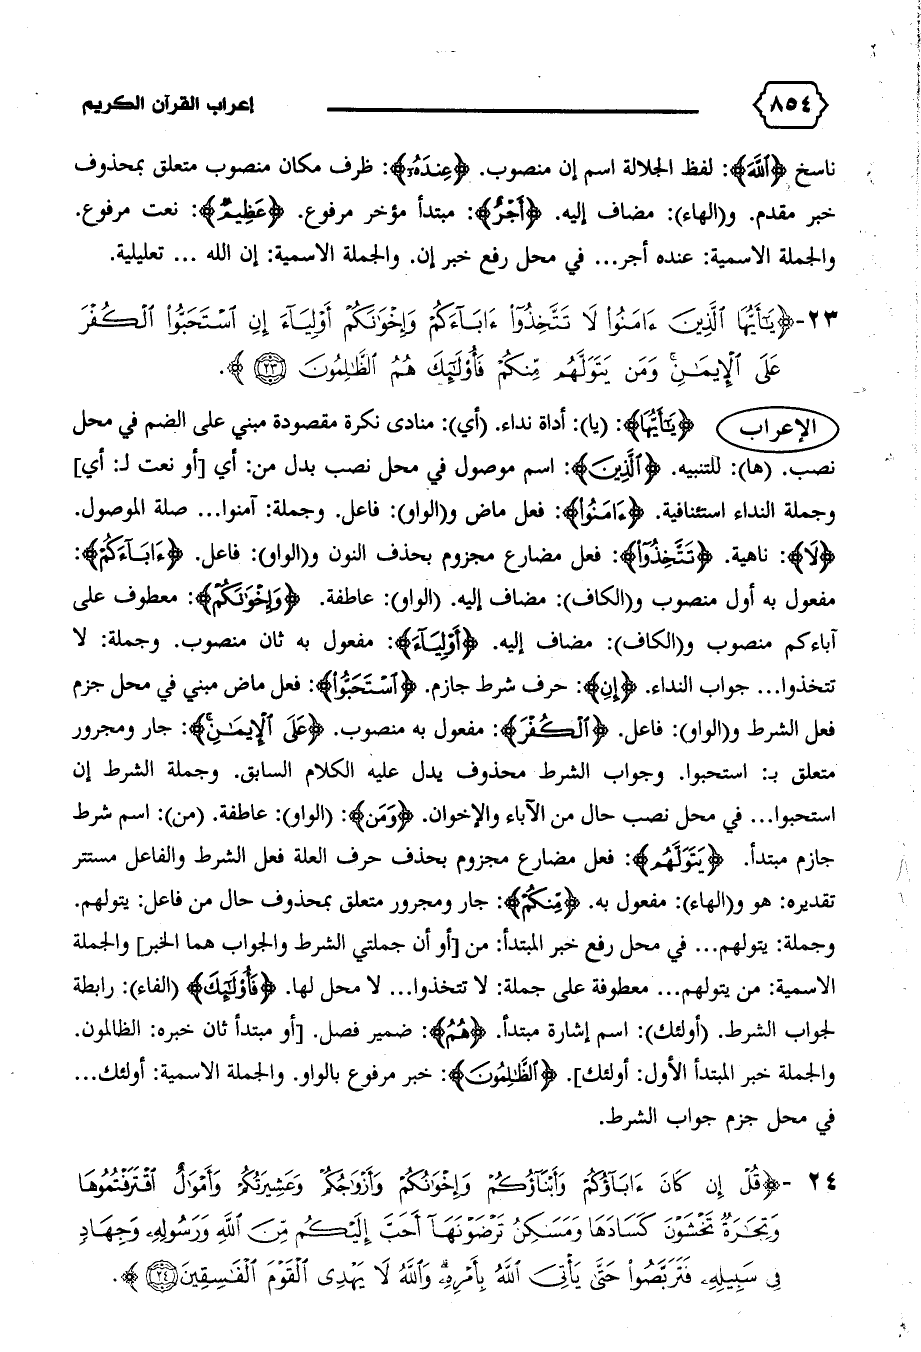 ٨٥٤ إعراب القرآن الكريم
ناسخ ﴿ٱللَّهَ﴾: لفظ الجلالة اسم إن منصوب. ﴿عِندَهُۥٓ﴾: ظرف مكان منصوب متعلق بمحذوف
خبر مقدم. و(الهاء): مضاف إليه. ﴿أَجْرٌ﴾: مبتدأ مؤخر مرفوع. ﴿عَظِيمٌ﴾: نعت مرفوع.
والجملة الاسمية: عنده أجر... في محل رفع خبر إن. والجملة الاسمية: إن الله ... تعليلية.
٢٣-﴿يَـٰٓأَيُّهَا ٱلَّذِينَ ءَامَنُوا۟ لَا تَتَّخِذُوٓا۟ ءَابَآءَكُمْ وَإِخْوَٰنَكُمْ أَوْلِيَآءَ إِنِ ٱسْتَحَبُّوا۟ ٱلْكُفْرَ
عَلَى ٱلْإِيمَـٰنِ ۚ وَمَن يَتَوَلَّهُم مِّنكُمْ فَأُو۟لَـٰٓئِكَ هُمُ ٱلظَّـٰلِمُونَ ﴿٢٣﴾ ﴾.
الإعراب ﴿يَـٰٓأَيُّهَا﴾: (يا): أداة نداء. (أي): منادى نكرة مقصودة مبني على الضم في محل
نصب. (ها): للتنبيه. ﴿ٱلَّذِينَ﴾: اسم موصول في محل نصب بدل من: أي [أو نعت لـ: أي]
وجملة النداء استئنافية. ﴿ءَامَنُوا۟﴾: فعل ماض و(الواو): فاعل. وجملة: آمنوا... صلة الموصول.
﴿لَا﴾: ناهية. ﴿تَتَّخِذُوٓا۟﴾: فعل مضارع مجزوم بحذف النون و(الواو): فاعل. ﴿ءَابَآءَكُمْ﴾:
مفعول به أول منصوب و(الكاف): مضاف إليه. (الواو): عاطفة. ﴿وَإِخْوَٰنَكُمْ﴾: معطوف على
آباءكم منصوب و(الكاف): مضاف إليه. ﴿أَوْلِيَآءَ﴾: مفعول به ثان منصوب. وجملة: لا
تتخذوا... جواب النداء. ﴿إِنِ﴾: حرف شرط جازم. ﴿ٱسْتَحَبُّوا۟﴾: فعل ماض مبني في محل جزم
فعل الشرط و(الواو): فاعل. ﴿ٱلْكُفْرَ﴾: مفعول به منصوب. ﴿عَلَى ٱلْإِيمَـٰنِ ۚ﴾: جار ومجرور
متعلق بـ: استحبوا. وجواب الشرط محذوف يدل عليه الكلام السابق. وجملة الشرط إن
استحبوا... في محل نصب حال من الآباء والإخوان. ﴿وَمَن﴾: (الواو): عاطفة. (من): اسم شرط
جازم مبتدأ. ﴿يَتَوَلَّهُم﴾: فعل مضارع مجزوم بحذف حرف العلة فعل الشرط والفاعل مستتر
تقديره: هو و(الهاء): مفعول به. ﴿مِّنكُمْ﴾: جار ومجرور متعلق بمحذوف حال من فاعل: يتولهم.
وجملة: يتولهم... في محل رفع خبر المبتدأ: من [أو أن جملتي الشرط والجواب هما الخبر] والجملة
الاسمية: من يتولهم... معطوفة على جملة: لا تتخذوا... لا محل لها. ﴿فَأُو۟لَـٰٓئِكَ﴾ (الفاء): رابطة
لجواب الشرط. (أولئك): اسم إشارة مبتدأ. ﴿هُمُ﴾: ضمير فصل. [أو مبتدأ ثان خبره: الظالمون.
والجملة خبر المبتدأ الأول: أولئك]. ﴿ٱلظَّـٰلِمُونَ﴾: خبر مرفوع بالواو. والجملة الاسمية: أولئك...
في محل جزم جواب الشرط.
٢٤ -﴿قُلْ إِن كَانَ ءَابَآؤُكُمْ وَأَبْنَآؤُكُمْ وَإِخْوَٰنُكُمْ وَأَزْوَٰجُكُمْ وَعَشِيرَتُكُمْ وَأَمْوَٰلٌ ٱقْتَرَفْتُمُوهَا
وَتِجَـٰرَةٌ تَخْشَوْنَ كَسَادَهَا وَمَسَـٰكِنُ تَرْضَوْنَهَآ أَحَبَّ إِلَيْكُم مِّنَ ٱللَّهِ وَرَسُولِهِۦ وَجِهَادٍ
فِى سَبِيلِهِۦ فَتَرَبَّصُوا۟ حَتَّىٰ يَأْتِىَ ٱللَّهُ بِأَمْرِهِۦ ۗ وَٱللَّهُ لَا يَهْدِى ٱلْقَوْمَ ٱلْفَـٰسِقِينَ ﴿٢٤﴾ ﴾.